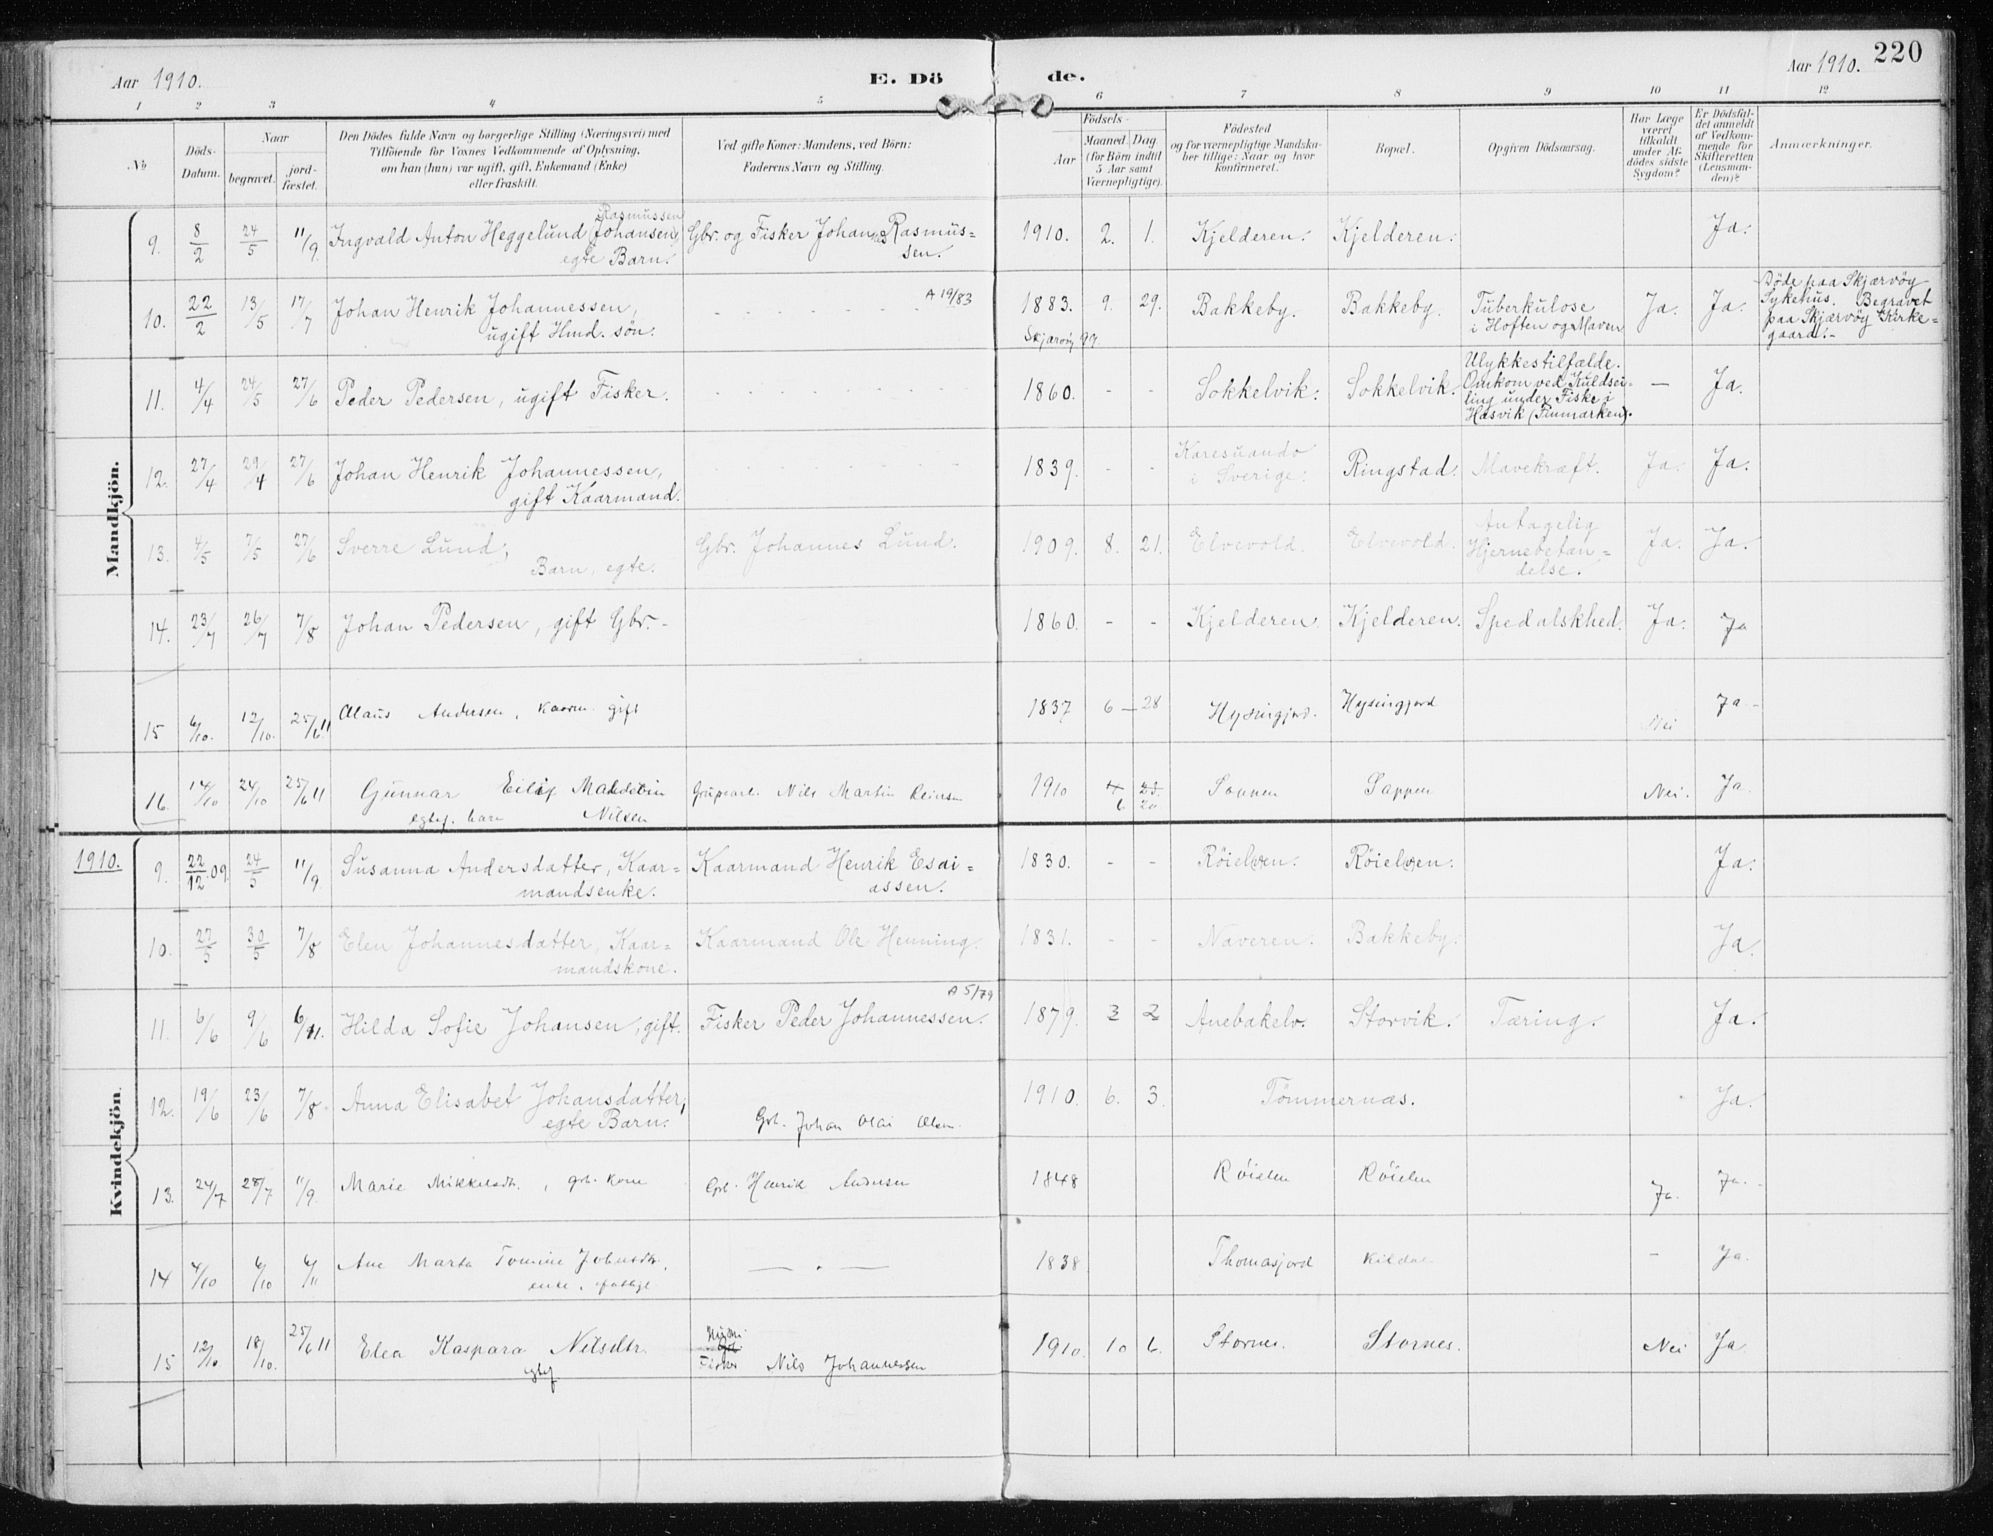 220
Aar 1910.
E. Dö de.
Aar 1910.
1 2 3 4 5 6 7 8 9 10 11 12
No
Döds-
Datum.
Naar
begravet.
jord-
fæstet.
Den Dödes fulde Navn og borgerlige Stilling (Næringsvei) med
Tilföiende for Voxnes Vedkommende af Oplysning,
om han (hun) var ugift, gift, Enkemand (Enke)
eller fraskilt.
Ved gifte Koner: Mandens, ved Börn:
Faderens Navn og Stilling.
Födsels-
Aar
Maaned. Dag
(for Börn indtil
5 Aar samt
Værnepligtige).
Födested
og for værnepligtige Mandska-
ber tillige: Naar og hvor
konfirmeret.
Bopæl.
Opgiven Dödsaarsag.
Har Læge
været
tilkaldt
under Af-
dödes sidste
Sygdom?
Er Dödsfal-
det anmeldt
af Vedkom-
mende for
Skifteretten
(Lensman-
den)?
Anmærkninger.
Mandkjön.
Rasmussen
9. 8/2 24/5 11/9 Ingvald Anton Heggelund (Johansen), Gbr. og Fisker Johan Rasmus- 1910. 2. 1. Kjelderen. Kjelderen. Ja.
egte Barn. sen.
10. 22/2 13/5 17/7 Johan Henrik Johannessen, A 19/83 1883. 9. 29. Bakkeby. Bakkeby. Tuberkulose Ja. Ja. Döde paa Skjærvøy
ugift Hmd. søn. Skjærvøy 99. i Hoften og Maven Sykehus. Begravet
paa Skjærvøy Kirke-
gaard.-
11. 4/4 24/5 27/6 Peder Pedersen, ugift Fisker. 1860. - - Sokkelvik. Sokkelvik. Ulykkestilfælde. - Ja.
Omkom ved Kuldsei-
ling under Fiske i
Hasvik (Finmarken).
12. 27/4 29/4 27/6 Johan Henrik Johannessen, 1839. - - Karesuando Ringstad. Mavekræft. Ja. Ja.
gift Kaarmand. i Sverige.
13. 4/5 7/5 27/6 Sverre Lund, Gbr. Johannes Lund. 1909. 8. 21. Elvevold. Elvevold. Antagelig Ja. Ja.
Barn, egte. Hjernebetæn-
delse.
14. 23/7 26/7 7/8 Johan Pedersen, gift Gbr.- 1860. - - Kjelderen. Kjelderen. Spedalskhed. Ja. Ja
15 6/10. 12/10. 25/6 11 Claus Andersen, kaarm. gift 1837 6 - 28 Hysingjord. Hysingjord Nei Ja -
16. 14/10 24/10 25/6 11 Gunnar Eilif 1910 6 20 Sappen Sappen Nei. Ja.
egtef. barn Nilsen Nils Martin
Kvindekjön.
1910. 9. 22/12.09. 24/5 11/9. Susanna Andersdatter, Kaar- Kaarmand Henrik Esai- 1830. - - Røielven. Røielven. Ja.
mandsenke. assen.
10. 27/5 30/5 7/8 Elen Johannesdatter, Kaar- Kaarmand Ole Henning. 1831. - - Naveren. Bakkeby. Ja.
mandskone.
A 5/79
11. 6/6 9/6 6/11. Hilda Sofie Johansen, gift. Fisker Peder Johannessen. 1879. 3 2 Anebakelv. Storvik. Tæring. Ja.
12. 19/6 23/6 7/8. Anna Elisabet Johansdatter, 1910. 6. 3. Tømmernæs. Ja.
egte Barn. Gbr. Johan Olai Olsen.
13. 24/7 28/7 11/9. Marie Mikkelsdtr., gbr. kone Gbr. Henrik Andersen 1848 Røielen Røielen Ja. Ja.
14 4/10 6/10 6/11 Ane Marta Tomine Johnsdtr. - . - 1838 Thomasjord Kildal - Ja.
enke, fattigl.
15 12/10 18/10. 25/6 11 Elea Kaspara Nilsdtr. 1910. 10 6. Stornes. Stornes. Nei Ja
egtef Fisker Nils Johannessen